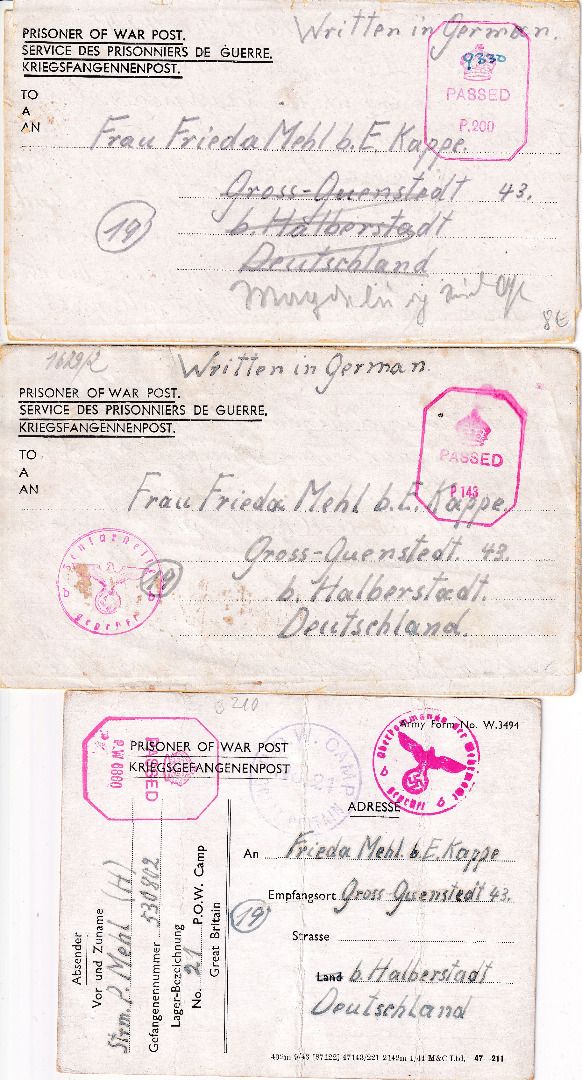 Written in German.
PRISONER OF WAR POST.
SERVICE DES PRISONNIERS DE GUERRE.
KRIEGSFANGENNENPOST.
9330
PASSED
P.200
TO
A
AN
Frau Frieda Mehl b. E. Kappe.
Gross-Quenstedt 43.
b. Halberstadt
Deutschland
19
8€
1629/2
Written in German.
PRISONER OF WAR POST.
SERVICE DES PRISONNIERS DE GUERRE.
KRIEGSFANGENNENPOST.
PASSED
P 143
TO
A
AN
Frau Frieda Mehl b. E. Kappe.
Gross-Quenstedt. 43.
b. Halberstadt.
Deutschland.
19
b
b
geprüft
Army Form No. W.3494
PRISONER OF WAR POST
KRIEGSGEFANGENENPOST
PASSED
P.W 6800
P.W. CAMP
21
BRITAIN
Oberkommando der Wehrmacht
b
b
geprüft
ADRESSE
An Frieda Mehl b. E. Kappe
Empfangsort Gross-Quenstedt 43.
Strasse
Land b. Halberstadt
Deutschland
19
Absender
Vor und Zuname
Strm. P. Mehl (H)
Gefangenennummer 530802
Lager-Bezeichnung
No. 21 P.O.W. Camp
Great Britain
M&C Ltd. 47 211